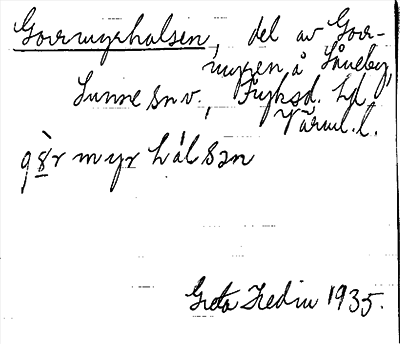 Gorrmyrhalsen, del av Gorr-
myren å Såneby,
Sunne sn v., Fryksd. hd
Värml. l.
gèr myr hálsən
Greta Hedin 1935.